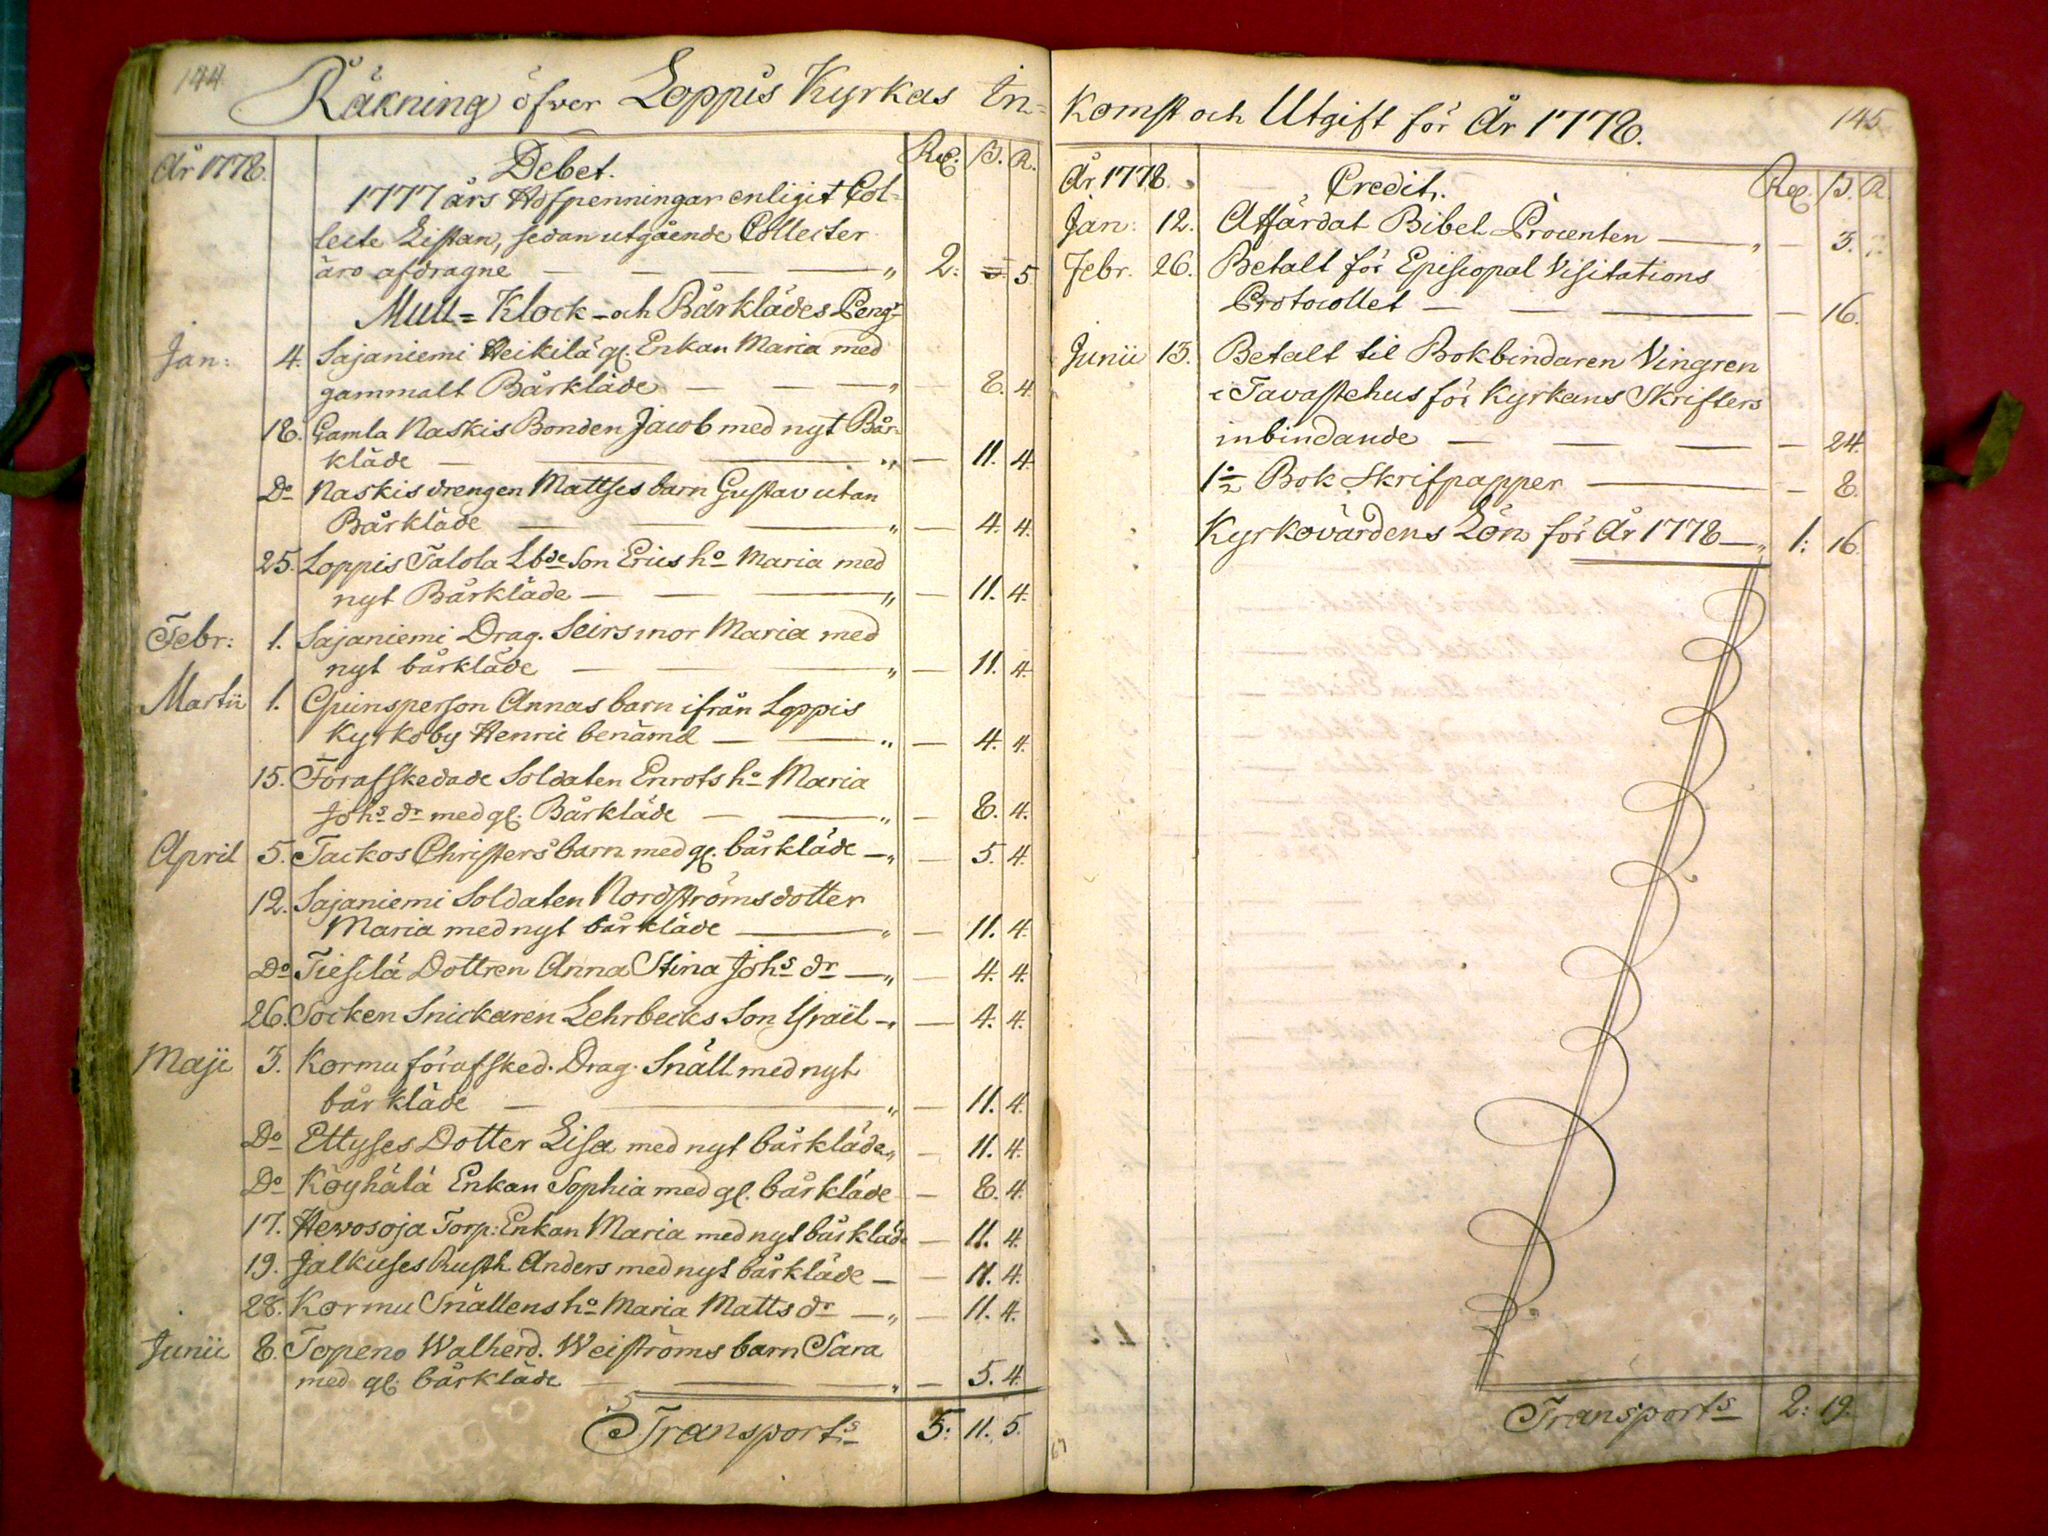 144
Räkning öfver Loppis Kyrkas In=
År 1778. Debet. Rd. ß. R.
1777 års Håfpenningar enligit Col-
lecte Listan, sedan utgående Collecter
äro afdragne — — — " 2: — 5
Mull= Klock- och Bårklädes Peng.r
Jan: 4. Sajaniemi Heikilä gl. Enkan Maria med
gammalt Bårkläde — — — " — 8. 4.
18. Gamla Naskis Bonden Jacob med nyt Bår-
kläde — — — " — 11. 4.
D:o Naskis drengen Mattses barn Gustav utan
Bårkläde — — — " — 4. 4.
25. Loppis Talola Lbde Son Erics h:o Maria med
nyt Bårkläde — — — " — 11. 4.
Febr: 1. Sajaniemi Drag. Seirs mor Maria med
nyt bårkläde — — " — 11. 4.
Martii 1. Qvinsperson Annas barn ifrån Loppis
Kyrkoby Henric benämd — — " — 4. 4.
15. Förafskedade Soldaten Enrots h:o Maria
Joh:s d:r med gl. Bårkläde — — " — 8. 4.
April 5. Tackos Christers barn med gl. bårkläde — " — 5. 4.
12. Sajaniemi Soldaten Nordströms dotter
Maria med nyt bårkläde — " — 11. 4.
D:o Dottren Anna Stina Joh:s d:r — " — 4. 4.
26. Socken Snickaren Lehrbecks Son Israël — " — 4. 4.
Maji 3. Kormu förafsked. Drag. Snäll med nyt
bårkläde — — " — 11. 4.
D:o Ettyses Dotter Lisa med nyt bårkläde " — 11. 4.
D:o Köyhälä Enkan Sophia med gl. bårkläde — 8. 4.
17. Hevosoja Torp: Enkan Maria med nyt bårkläde — 11. 4.
19. Jalkuses Rusth. Anders med nyt bårkläde — — 11. 4.
28. Kormu Snällens h:o Maria Matts d:r — " — 11. 4.
Junii 8. Topeno Walherd. Weiströms barn Sara
med gl. bårkläde — — " — 5. 4.
Transport:s 5: 11. 5.
145
Komst och Utgift för År 1778.
År 1778. Credit. Rd. ß. R.
Jan: 12. Affärdat Bibel Procenten — " — 3.
Febr. 26. Betalt för Episcopal Visitations
Protocollet — — — — 16.
Junii 13. Betalt til Bokbindaren Vingren
i Tavastehus för Kyrkans Skrifters
inbindande — — — — 24.
1½ Bok Skrifpapper — — 8.
Kyrkovärdens Lön för År 1778 — " 1: 16.
Transport:s 2: 19.